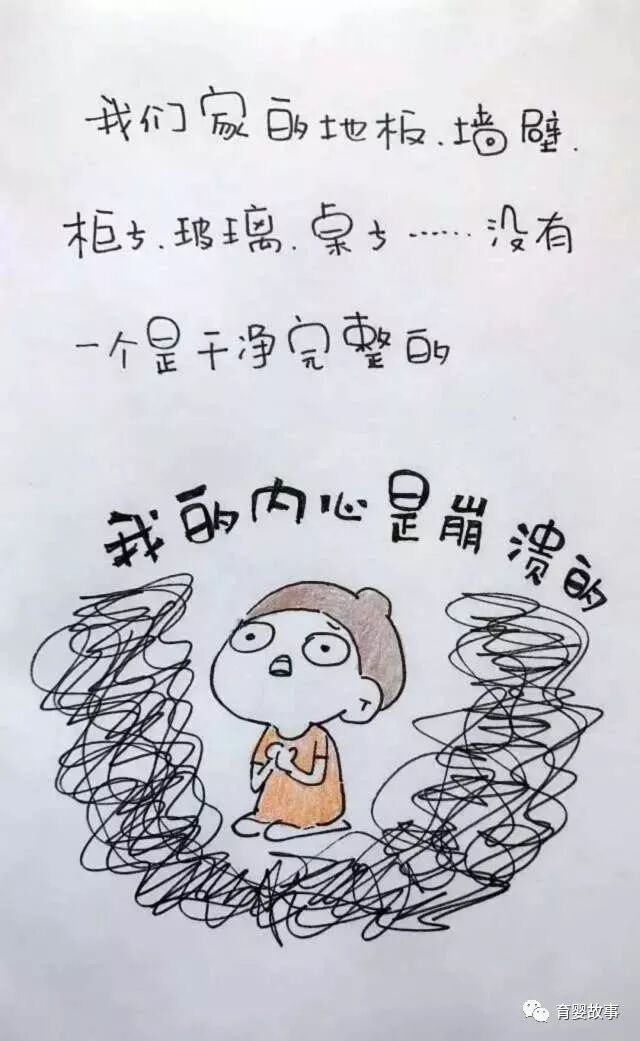 我们家的地板、墙壁、
柜子、玻璃、桌子……没有
一个是干净完整的
我的内心是崩溃的
育婴故事